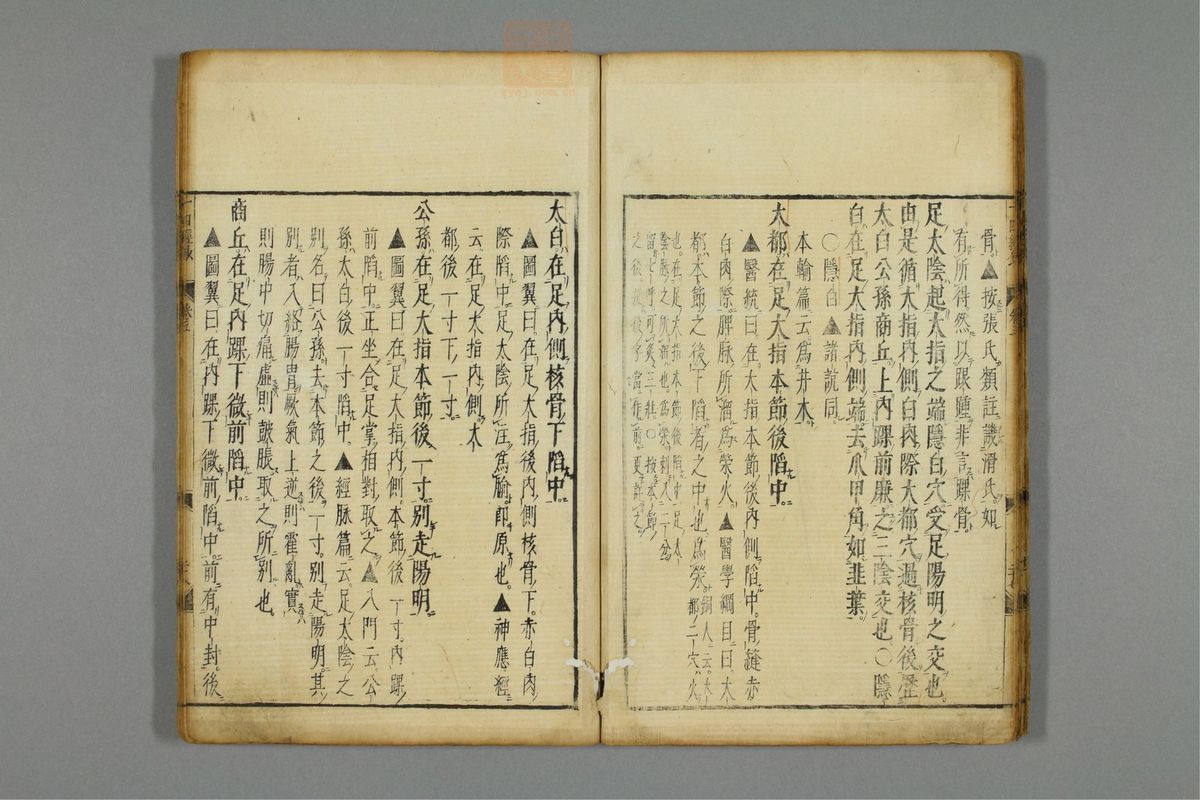 骨▲按張氏類註譏滑氏如
有所得然以踝踵非言踝骨
足太陰起大指之端隱白穴受足陽明之交也
由是循大指內側白肉際大都穴過核骨後歷
太白公孫商丘上內踝前廉之三陰交也○隱
白在足大指內側端去爪甲角如韭葉
○隱白▲諸說同
本輸篇云爲井木
大都在足大指本節後陷中
▲醫統曰在大指本節後內側陷中骨縫赤
白肉際脾脉所溜爲滎火▲醫學綱目曰太
都本節之後下陷者之中也爲滎
銅人云大
都二穴火
也在足大指本節後陷中足太
陰脉之所溜也爲滎刺入三分
留七呼可灸三壯○按本節
之後
太白在足內側核骨下陷中
▲圖翼曰在足大指後內側核骨下赤白肉
際陷中足太陰所注爲腧卽原也▲神應經
云在足大指內側太
都後一寸下一寸
公孫在足大指本節後一寸別走陽明
▲圖翼曰在足大指內側本節後一寸內踝
前陷中正坐合足掌相對取之▲入門云公
孫太白後一寸陷中▲經脉篇云足太陰之
別名曰公孫去本節之後一寸別走陽明其
別者入絡腸胃厥氣上逆則霍亂實
則腸中切痛虛則皷脹取之所別也
商丘在足內踝下微前陷中
▲圖翼曰在內踝下微前陷中前有中封後